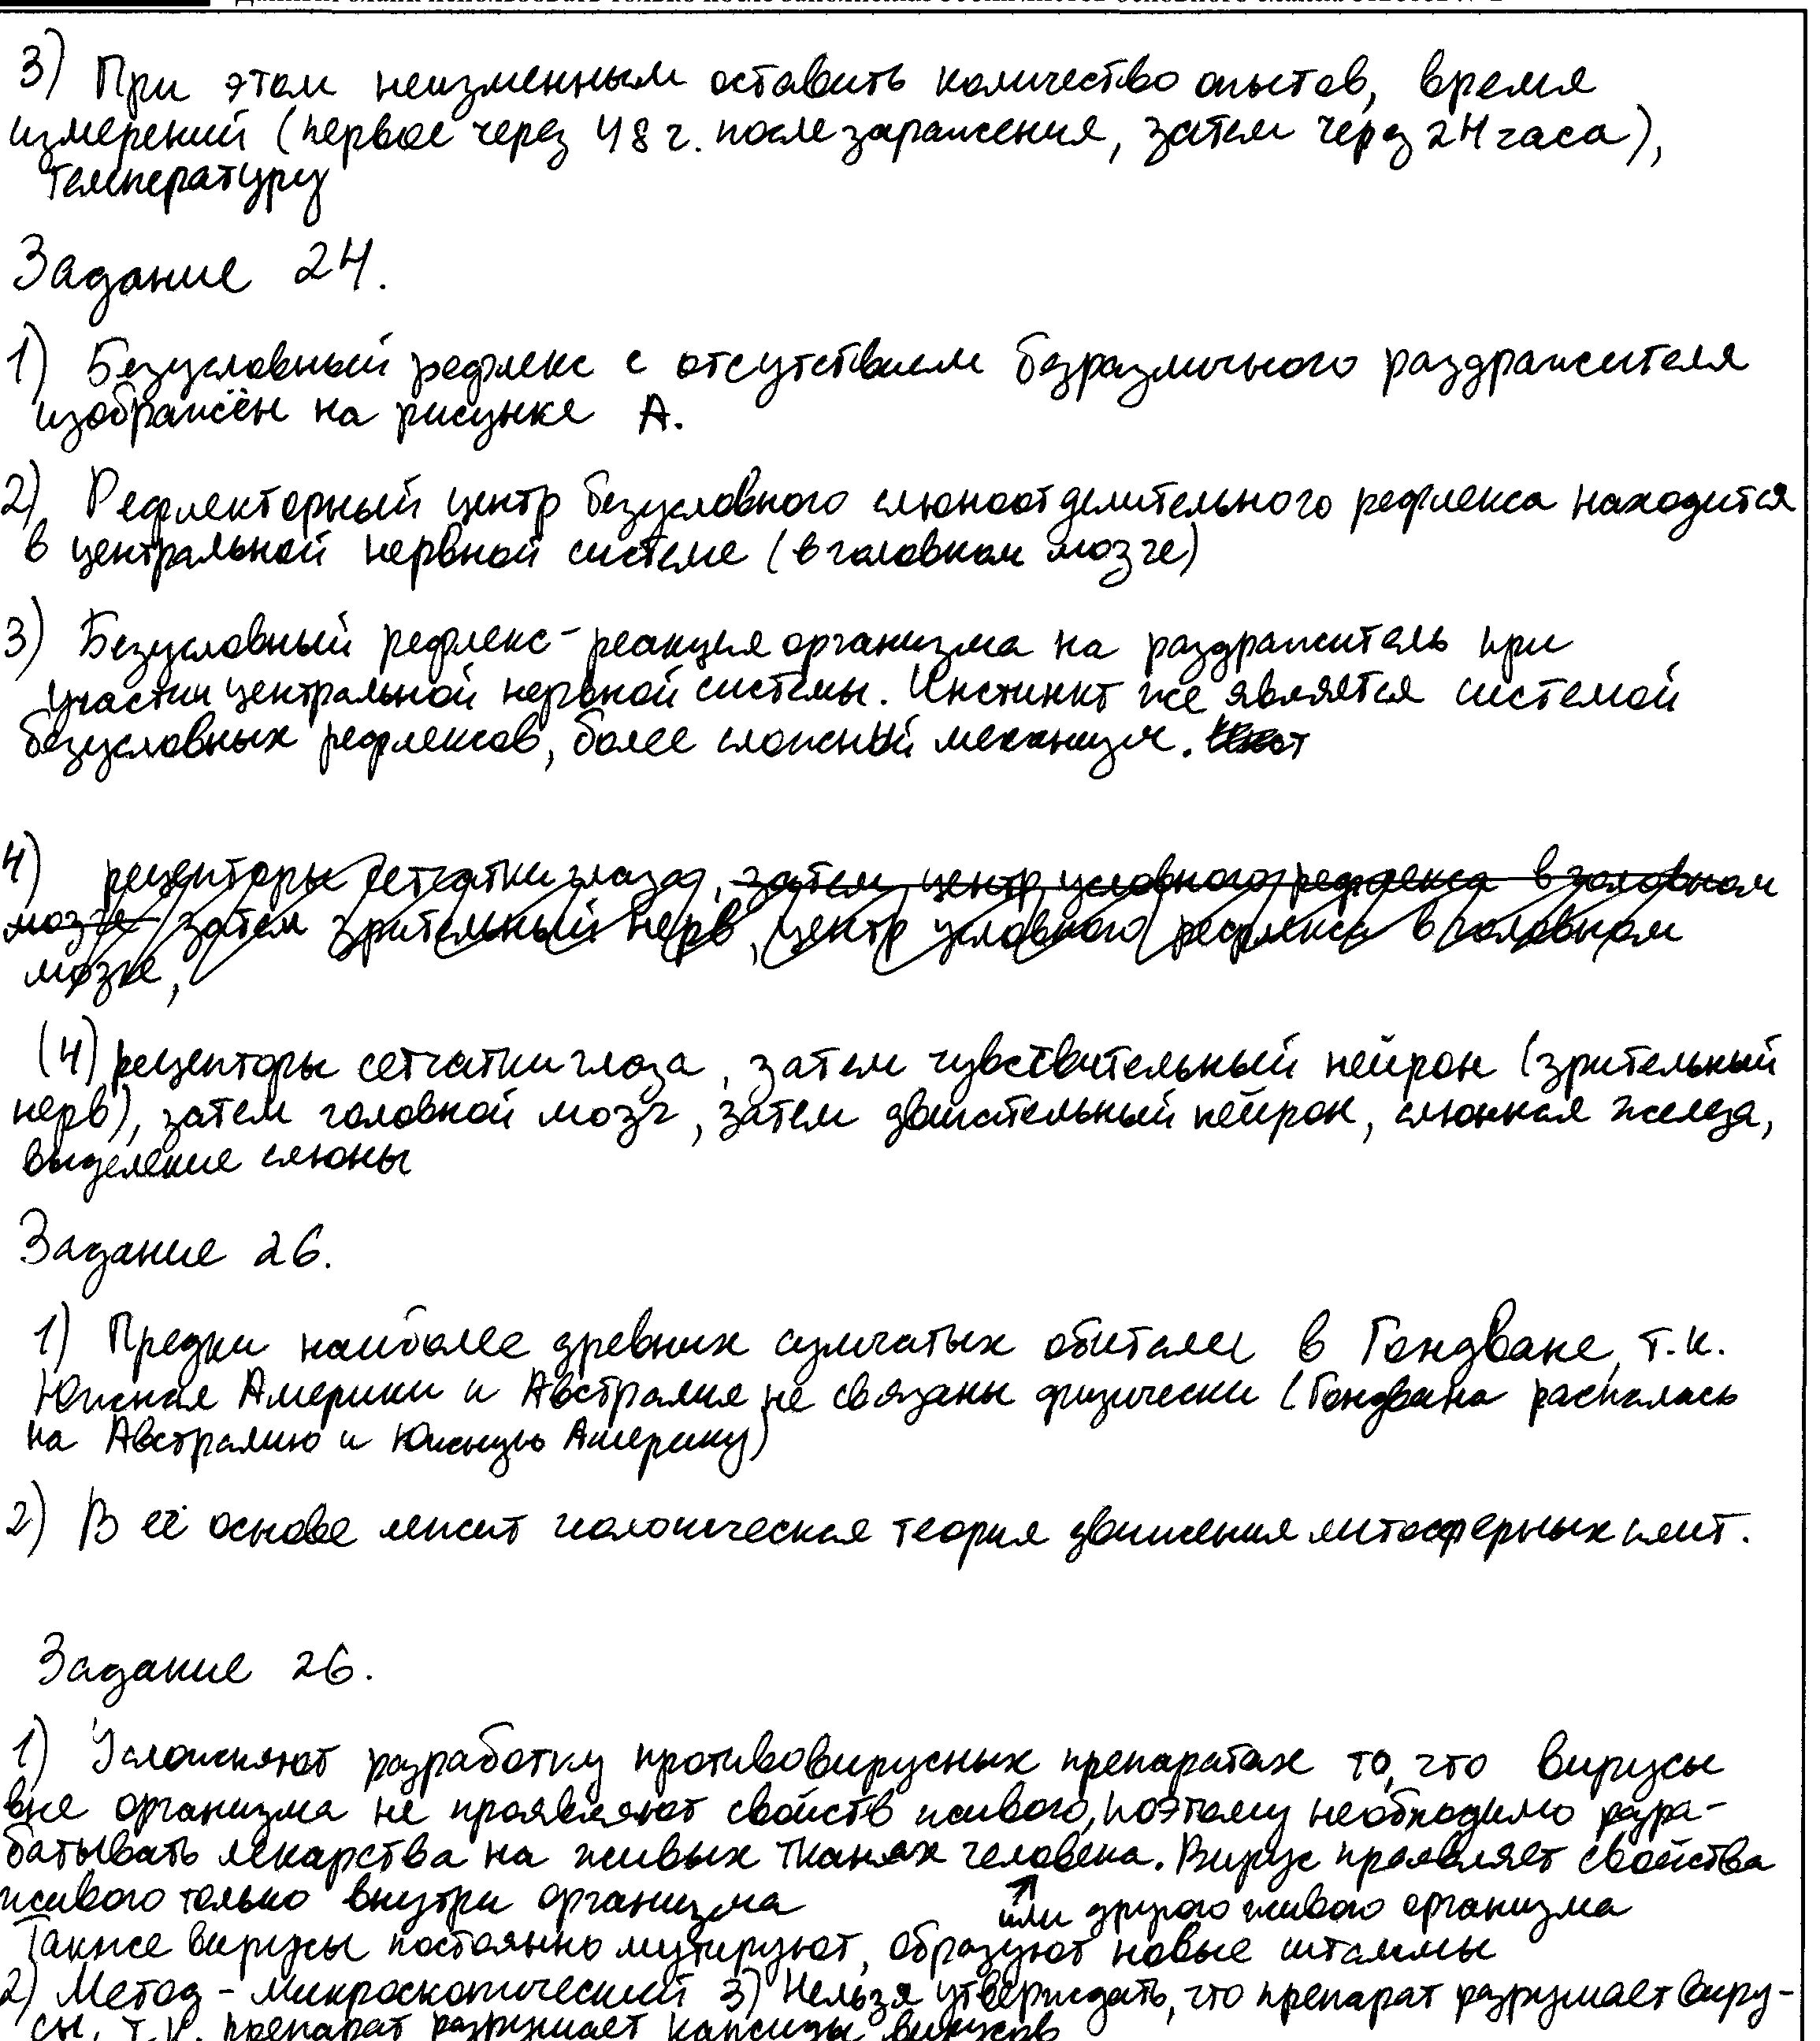 3) При этом неизменным оставить количество опытов, время
измерений (первое через 48 г. после заражения, затем через 24 часа),
температуру
Задание 24.
1) Безусловный рефлекс с отсутствием безразличного раздражителя
изображён на рисунке А.
2) Рефлекторный центр безусловного слюноотделительного рефлекса находится
в центральной нервной системе (в головном мозге)
3) Безусловный рефлекс - реакция организма на раздражитель при
участии центральной нервной системы. Инстинкт же является системой
безусловных рефлексов, более сложный механизм.
4) рецепторы сетчатки глаза, затем центр условного рефлекса в головном
мозге затем зрительный нерв, центр условного рефлекса в головном
мозге,
(4) рецепторы сетчатки глаза, затем чувствительный нейрон (зрительный
нерв), затем головной мозг, затем двигательный нейрон, слюнная железа,
выделение слюны
Задание 26.
1) Предки наиболее древних сумчатых обитали в Гондване, т.к.
Южная Америки и Австралия не связаны физически (Гондвана распалась
на Австралию и Южную Америку)
2) В её основе лежит теория движения литосферных плит.
Задание 26.
1) Усложняют разработку противовирусных препаратах то, что вирусы
вне организма не проявляют свойств живого, поэтому необходимо разра-
батывать лекарства на живых тканях человека. Вирус проявляет свойства
живого только внутри организма или другого живого организма
Также вирусы постоянно мутируют, образуют новые штаммы
2) Метод - микроскопический 3) Нельзя утверждать, что препарат разрушает виру-
сы, т.к. препарат разрушает капсиды вирусов